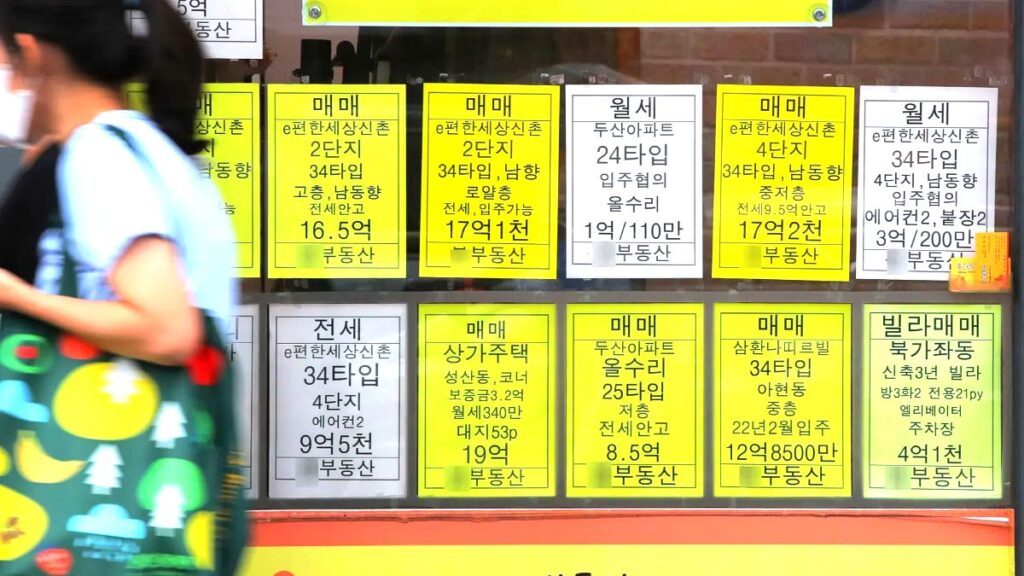 5억
부동산
매매
e편한세상신촌
2단지
34타입
고층,남동향
전세안고
16.5억
부동산
매매
e편한세상신촌
2단지
34타입,남향
로얄층
전세,입주가능
17억1천
부동산
월세
두산아파트
24타입
입주협의
올수리
1억/110만
부동산
매매
e편한세상신촌
4단지
34타입,남동향
중저층
전세9.5억안고
17억2천
부동산
월세
e편한세상신촌
34타입
4단지,남동향
입주협의
에어컨2,붙장2
3억/200만
부동산
전세
e편한세상신촌
34타입
4단지
에어컨2
9억5천
부동산
매매
상가주택
성산동,코너
보증금3.2억
월세340만
대지53p
19억
부동산
매매
두산아파트
올수리
25타입
저층
전세안고
8.5억
부동산
매매
삼환나띠르빌
34타입
아현동
중층
22년2월입주
12억8500만
부동산
빌라매매
북가좌동
신축3년 빌라
방3화2 전용21py
엘리베이터
주차장
4억1천
부동산